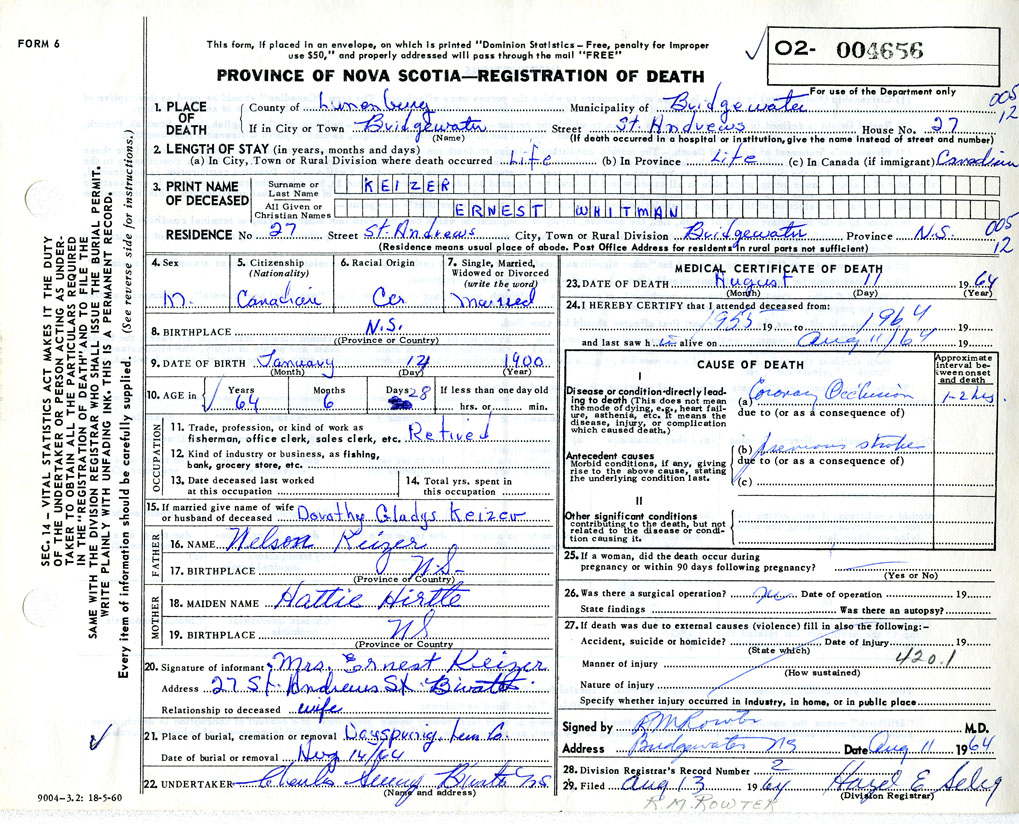 FORM 6
This form, if placed in an envelope, on which is printed "Dominion Statistics – Free, penalty for improper
use $50," and properly addressed will pass through the mail "FREE"
✓ 02- 004656
For use of the Department only
PROVINCE OF NOVA SCOTIA—REGISTRATION OF DEATH
005
12
1. PLACE OF DEATH { County of Lunenburg Municipality of Bridgewater
If in City or Town Bridgewater (Name) Street St. Andrews House No. 27
(If death occurred in a hospital or institution, give the name instead of street and number)
2. LENGTH OF STAY (in years, months and days)
(a) In City, Town or Rural Division where death occurred Life (b) In Province Life (c) In Canada (if immigrant) Canadian
3. PRINT NAME OF DECEASED
Surname or Last Name KEIZER
All Given or Christian Names ERNEST WHITMAN
RESIDENCE No 27 Street St Andrews City, Town or Rural Division Bridgewater Province N.S.
005
12
(Residence means usual place of abode. Post Office Address for residents in rural parts not sufficient)
4. Sex M.
5. Citizenship (Nationality) Canadian
6. Racial Origin Ger
7. Single, Married, Widowed or Divorced (write the word) Married
8. BIRTHPLACE N.S.
(Province or Country)
9. DATE OF BIRTH January 14 1900
(Month) (Day) (Year)
10. AGE in { ✓ Years 64 Months 6 Days 28 If less than one day old
hrs. or min.
OCCUPATION
11. Trade, profession, or kind of work as
fisherman, office clerk, sales clerk, etc. Retired
12. Kind of industry or business, as fishing,
bank, grocery store, etc.
13. Date deceased last worked
at this occupation
14. Total yrs. spent in
this occupation
15. If married give name of wife
or husband of deceased Dorothy Gladys Keizer
FATHER
16. NAME Nelson Keizer
17. BIRTHPLACE N.S.
(Province or Country)
MOTHER
18. MAIDEN NAME Hattie Hirtle
19. BIRTHPLACE NS
(Province or Country)
20. Signature of informant Mrs. Ernest Keizer
Address 27 St. Andrews St. B'water
Relationship to deceased wife
21. Place of burial, cremation or removal Dayspring, Lun. Co.
Date of burial or removal Aug 14/64
22. UNDERTAKER Charles B'water N.S.
(Name and address)
MEDICAL CERTIFICATE OF DEATH
23. DATE OF DEATH August 11 1964
(Month) (Day) (Year)
24. I HEREBY CERTIFY that I attended deceased from:
1955 19 to 1964 19
and last saw him alive on Aug 11/64 19
CAUSE OF DEATH
Approximate interval between onset and death
I
Disease or condition directly leading to death (This does not mean the mode of dying, e.g., heart failure, asthenia, etc. It means the disease, injury, or complication which caused death.)
(a) Coronary Occlusion 1-2 hrs.
due to (or as a consequence of)
Antecedent causes
Morbid conditions, if any, giving rise to the above cause, stating the underlying condition last.
(b) previous stroke
due to (or as a consequence of)
(c)
II
Other significant conditions
contributing to the death, but not related to the disease or condition causing it.
25. If a woman, did the death occur during
pregnancy or within 90 days following pregnancy?
(Yes or No)
26. Was there a surgical operation? no Date of operation 19
State findings Was there an autopsy?
27. If death was due to external causes (violence) fill in also the following:-
Accident, suicide or homicide? Date of injury 19
(State which)
Manner of injury 420.1
(How sustained)
Nature of injury
Specify whether injury occurred in industry, in home, or in public place
Signed by RM Rowter M.D.
Address Bridgewater NS Date Aug 11 1964
28. Division Registrar's Record Number 2
29. Filed Aug 13 1964 Hazel E Selig
(Division Registrar)
R.M. ROWTER
SEC. 14 – VITAL STATISTICS ACT MAKES IT THE DUTY
OF THE UNDERTAKER OR PERSON ACTING AS UNDER-
TAKER TO OBTAIN ALL THE PARTICULARS REQUIRED
IN THE "REGISTRATION OF DEATH" AND TO FILE THE
SAME WITH THE DIVISION REGISTRAR WHO SHALL ISSUE THE BURIAL PERMIT.
WRITE PLAINLY WITH UNFADING INK. THIS IS A PERMANENT RECORD.
Every item of information should be carefully supplied. (See reverse side for instructions.)
✓
9004–3.2: 18-5-60